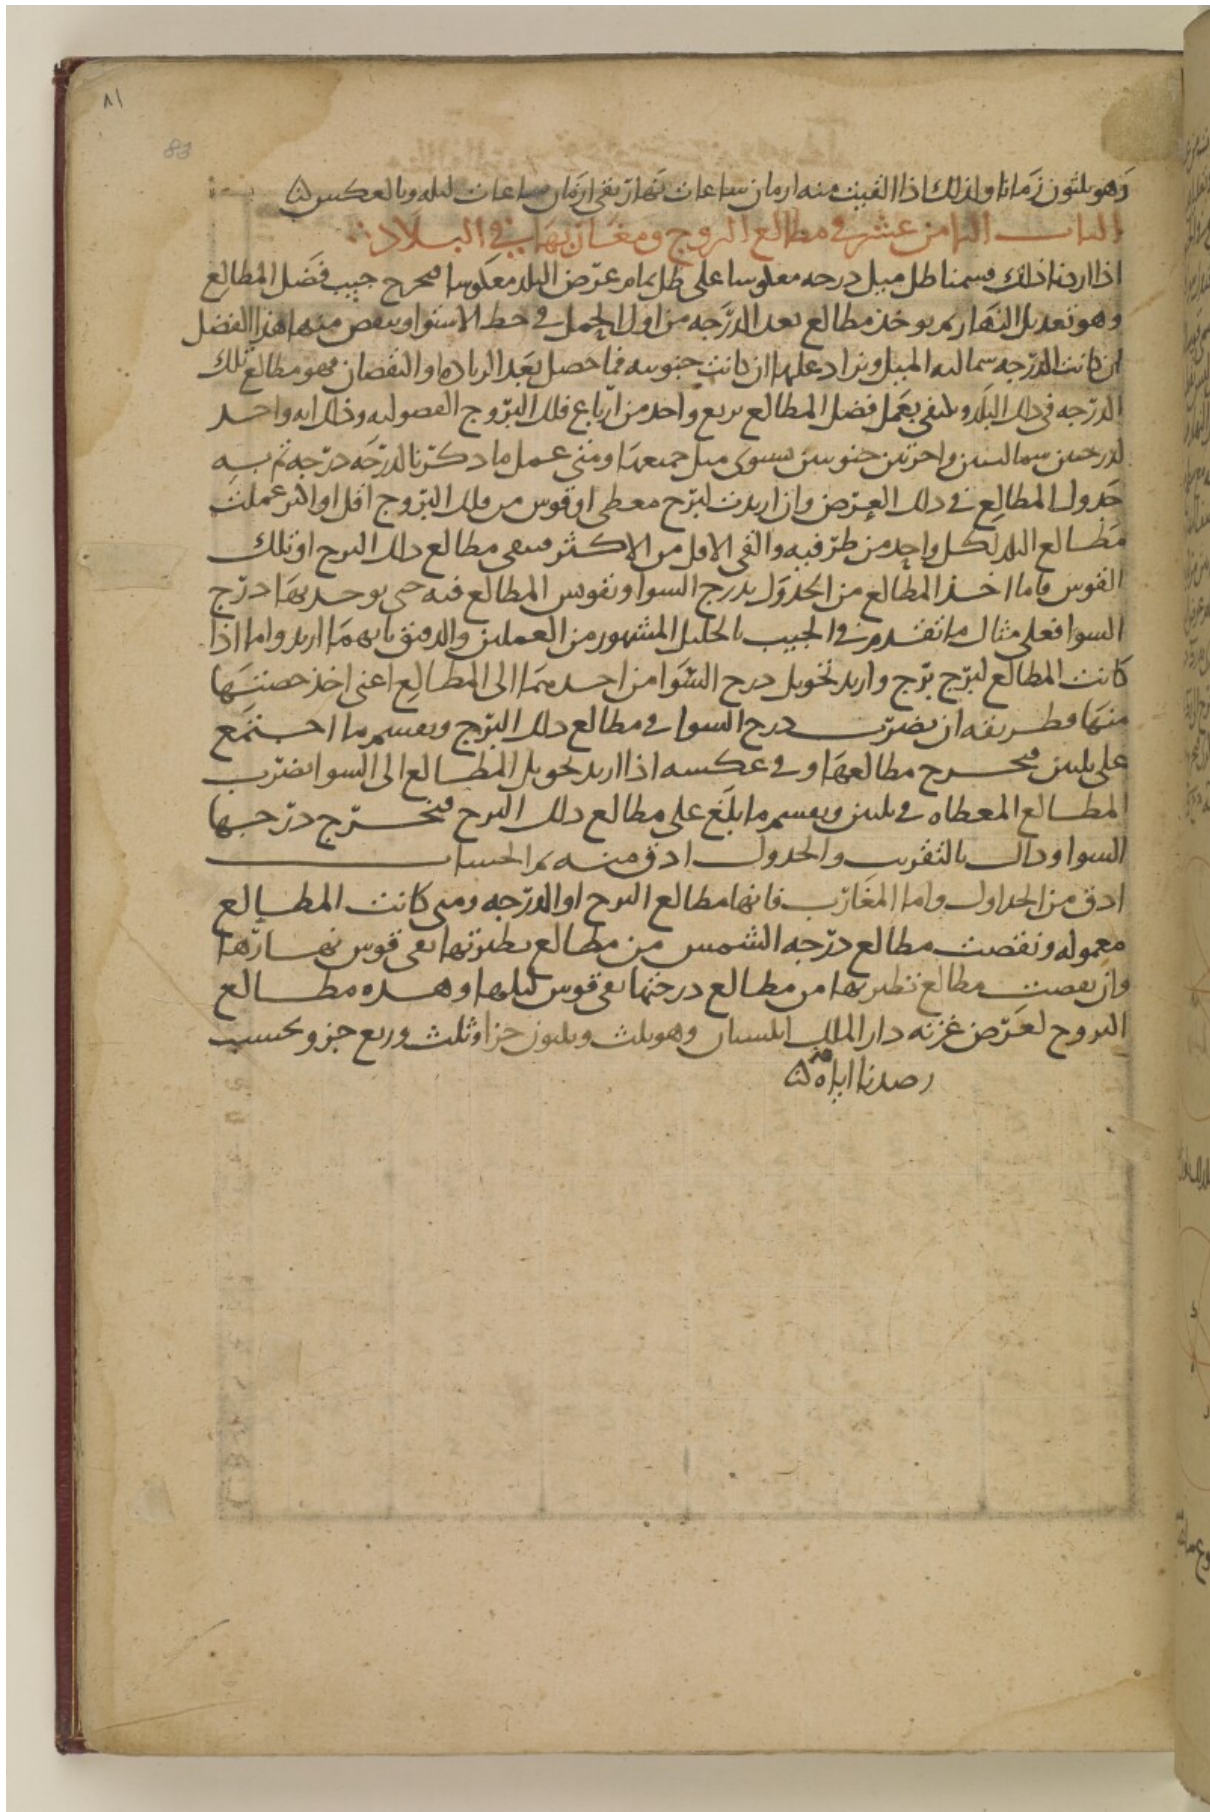 ٨١
83
وهو ثلثون زمانا ولذلك اذا القيت منه ازمان ساعات نهار بقى ازمان ساعات ليله وبالعكس
الباب الثامن عشر في مطالع البروج ومغاربها في البلاد
اذا اردنا ذلك قسمنا ظل ميل درجه معكوسا على ظل تمام عرض البلد معكوسا فيخرج جيب فضل المطالع
وهو تعديل النهار ثم يوخذ مطالع بعد الدرجه من اول الحمل في خط الاستوا وينقص منها هذا الفضل
ان كانت الدرجه شماليه الميل ويزاد عليها ان كانت جنوبيه فما حصل بعد الزياده او النقصان فهو مطالع تلك
الدرجه في ذلك البلد ويكفي بعمل فضل المطالع لربع واحد من ارباع فلك البروج الفصوليه وذلك انه واحد
لدرجتين شماليتين واخرتين جنوبيتين يستوى ميل جميعها ومتى عمل ما ذكرنا لدرجه درجه تم به
جدول المطالع في ذلك العرض وان اريدت لبرج معطى او قوس من فلك البروج اقل او اكثر عملت
مطالع البلد لكل واحد من طرفيه والقى الاقل من الاكثر فيبقى مطالع ذلك البرج او تلك
القوس فاما اخذ المطالع من الجدول بدرج السوا وتقويس المطالع فيه حتى يوجد بها درج
السوا فعلى مثال ما تقدم في الجيب بالتعديل المشهور من العملين والدقيق بايهما اريد واما اذا
كانت المطالع لبرج برج واريد تحويل درج السوا من احدهما الى المطالع اعنى اخذ حصتها
منها فطريقه ان يضرب درج السوا في مطالع ذلك البرج ويقسم ما اجتمع
على ثلثين فيخرج مطالعها وفي عكسه اذا اريد تحويل المطالع الى السوا يضرب
المطالع المعطاه في ثلثين ويقسم ما بلغ على مطالع ذلك البرج فيخرج درجها
السوا وذلك بالتقريب والجدول ادق منه ثم الحساب
ادق من الجداول واما المغارب فانها مطالع البرج او الدرجه ومتى كانت المطالع
معموله ونقصت مطالع درجه الشمس من مطالع نظيرتها بقى قوس نهارها
وان نقصت مطالع نظيرتها من مطالع درجتها بقى قوس ليلها وهذه مطالع
البروج لعرض غزنه دار الملك وهو ثلث وثلثون جزا وثلث وربع جزو بحسب
رصدنا اياه